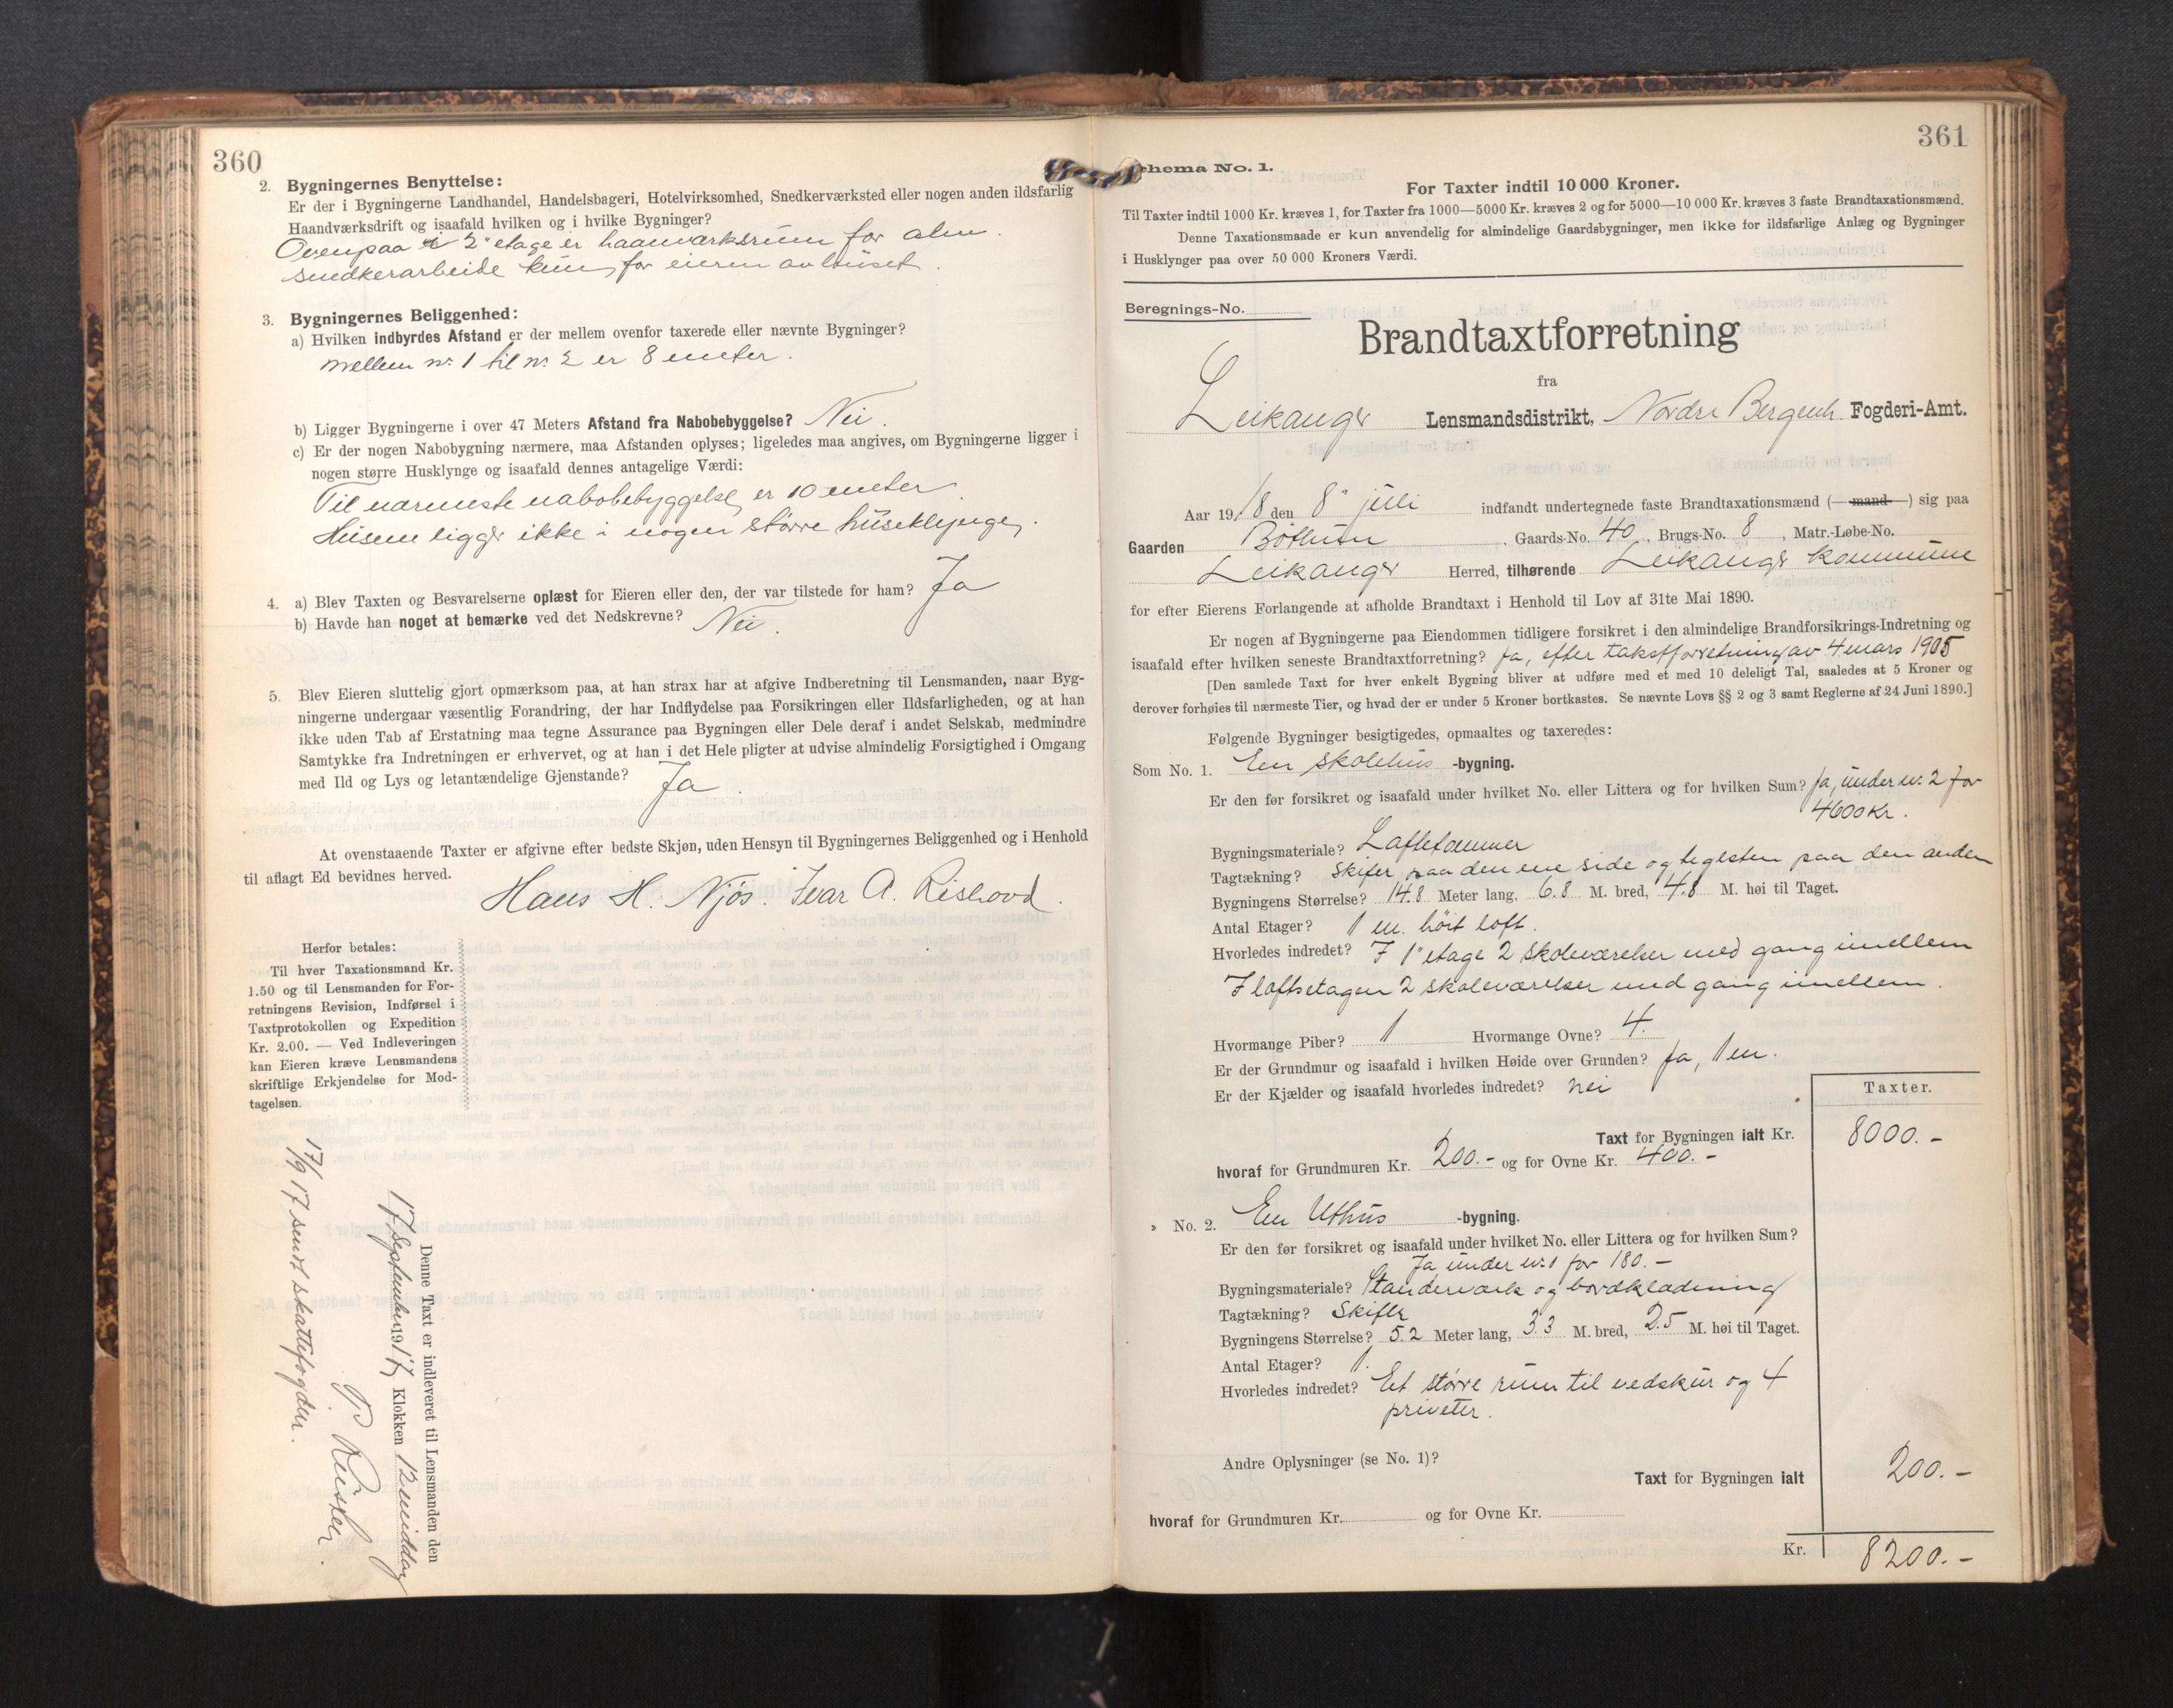 360
2. Bygningernes Benyttelse:
Er der i Bygningerne Landhandel, Handelsbageri, Hotelvirksomhed, Snedkerværksted eller nogen anden ildsfarlig
Haandværksdrift og isaafald hvilken og i hvilke Bygninger?
Ovenpaa 2' etage er haanværksrum for alm.
snedkerarbeide kun for eieren av huset.
3. Bygningernes Beliggenhed:
a) Hvilken indbyrdes Afstand er der mellem ovenfor taxerede eller nævnte Bygninger?
Mellem nr. 1 til nr. 2 er 8 meter.
b) Ligger Bygningerne i over 47 Meters Afstand fra Nabobebyggelse? Nei.
c) Er der nogen Nabobygning nærmere, maa Afstanden oplyses; ligeledes maa angives, om Bygningerne ligger i
nogen større Husklynge og isaafald dennes antagelige Værdi:
Til nærmeste nabobebyggelse er 10 meter.
Husene ligger ikke i nogen större huseklynge.
4. a) Blev Taxten og Besvarelserne oplæst for Eieren eller den, der var tilstede for ham? Ja
b) Havde han noget at bemærke ved det Nedskrevne? Nei.
5. Blev Eieren sluttelig gjort opmærksom paa, at han strax har at afgive Indberetning til Lensmanden, naar Byg-
ningerne undergaar væsentlig Forandring, der har Indflydelse paa Forsikringen eller Ildsfarligheden, og at han
ikke uden Tab af Erstatning maa tegne Assurance paa Bygningen eller Dele deraf i andet Selskab, medmindre
Samtykke fra Indretningen er erhvervet, og at han i det Hele pligter at udvise almindelig Forsigtighed i Omgang
med Ild og Lys og letantændelige Gjenstande? Ja.
At ovenstaaende Taxter er afgivne efter bedste Skjøn, uden Hensyn til Bygningernes Beliggenhed og i Henhold
til aflagt Ed bevidnes herved.
Hans H. Njös. Ivar A. Rishovd.
Herfor betales:
Til hver Taxationsmand Kr.
1.50 og til Lensmanden for For-
retningens Revision, Indførsel i
Taxtprotokollen og Expedition
Kr. 2.00. — Ved Indleveringen
kan Eieren kræve Lensmandens
skriftlige Erkjendelse for Mod-
tagelsen.
Denne Taxt er indleveret til Lensmanden den
17 September 1917 Klokken 12 middag
17/9 17 sendt skattefogden.
361
Schema No. 1.
For Taxter indtil 10 000 Kroner.
Til Taxter indtil 1000 Kr. kræves 1, for Taxter fra 1000—5000 Kr. kræves 2 og for 5000—10 000 Kr. kræves 3 faste Brandtaxationsmænd.
Denne Taxationsmaade er kun anvendelig for almindelige Gaardsbygninger, men ikke for ildsfarlige Anlæg og Bygninger
i Husklynger paa over 50 000 Kroners Værdi.
Beregnings-No.
Brandtaxtforretning
fra
Leikanger Lensmandsdistrikt, Nordre Bergenh. Fogderi-Amt.
Aar 1918 den 8" juli indfandt undertegnede faste Brandtaxationsmænd (—mand—) sig paa
Gaarden Böthun, Gaards-No. 40, Brugs-No. 8, Matr.-Løbe-No.
Leikanger Herred, tilhørende Leikanger kommune
for efter Eierens Forlangende at afholde Brandtaxt i Henhold til Lov af 31te Mai 1890.
Er nogen af Bygningerne paa Eiendommen tidligere forsikret i den almindelige Brandforsikrings-Indretning og
isaafald efter hvilken seneste Brandtaxtforretning? Ja, efter takstforretning av 4 mars 1905
[Den samlede Taxt for hver enkelt Bygning bliver at udføre med et med 10 deleligt Tal, saaledes at 5 Kroner og
derover forhøies til nærmeste Tier, og hvad der er under 5 Kroner bortkastes. Se nævnte Lovs §§ 2 og 3 samt Reglerne af 24 Juni 1890.]
Følgende Bygninger besigtigedes, opmaaltes og taxeredes:
Som No. 1. En skolehus -bygning.
Er den før forsikret og isaafald under hvilket No. eller Littera og for hvilken Sum? Ja, under nr. 2 for
4600 Kr.
Bygningsmateriale? Laftetømmer
Tagtækning? Skifer paa den ene side og teglsten paa den anden
Bygningens Størrelse? 14.8 Meter lang, 6.8 M. bred, 4.8 M. høi til Taget.
Antal Etager? 1 m. höit loft.
Hvorledes indredet? I 1" etage 2 skoleværelser med gang imellem
I loftsetagen 2 skoleværelser med gang imellem.
Hvormange Piber? 1 Hvormange Ovne? 4.
Er der Grundmur og isaafald i hvilken Høide over Grunden? Ja, 1 m.
Er der Kjælder og isaafald hvorledes indredet? nei
Taxter.
Taxt for Bygningen ialt Kr. 8000.-
hvoraf for Grundmuren Kr. 200.- og for Ovne Kr. 400.-
» No. 2. En Uthus -bygning.
Er den før forsikret og isaafald under hvilket No. eller Littera og for hvilken Sum?
Ja under nr. 1 for 180.-
Bygningsmateriale? Standerværk og bordklædning
Tagtækning? Skifer
Bygningens Størrelse? 5.2 Meter lang, 3.3 M. bred, 2.5 M. høi til Taget.
Antal Etager? 1.
Hvorledes indredet? Et større rum til vedskur og 4
priveter.
Andre Oplysninger (se No. 1)?
Taxt for Bygningen ialt 200.-
hvoraf for Grundmuren Kr. og for Ovne Kr.
Kr. 8200.-